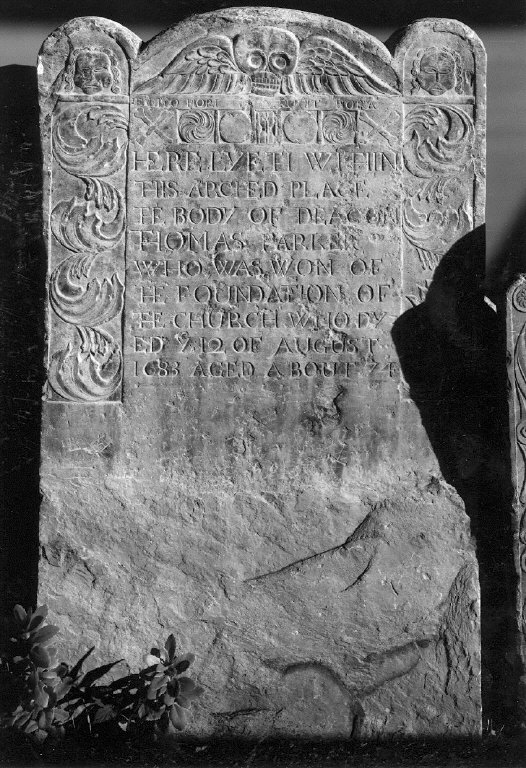 HERE LYE TH WITHIN
THIS ARCHED PLACE
THE BODY OF DEACON
THOMAS PARKER
WHO WAS WON OF
THE FOUNDATION OF
THE CHURCH WHO DY
ED Y 12 OF AUGUST
1683 AGED ABOUT 74